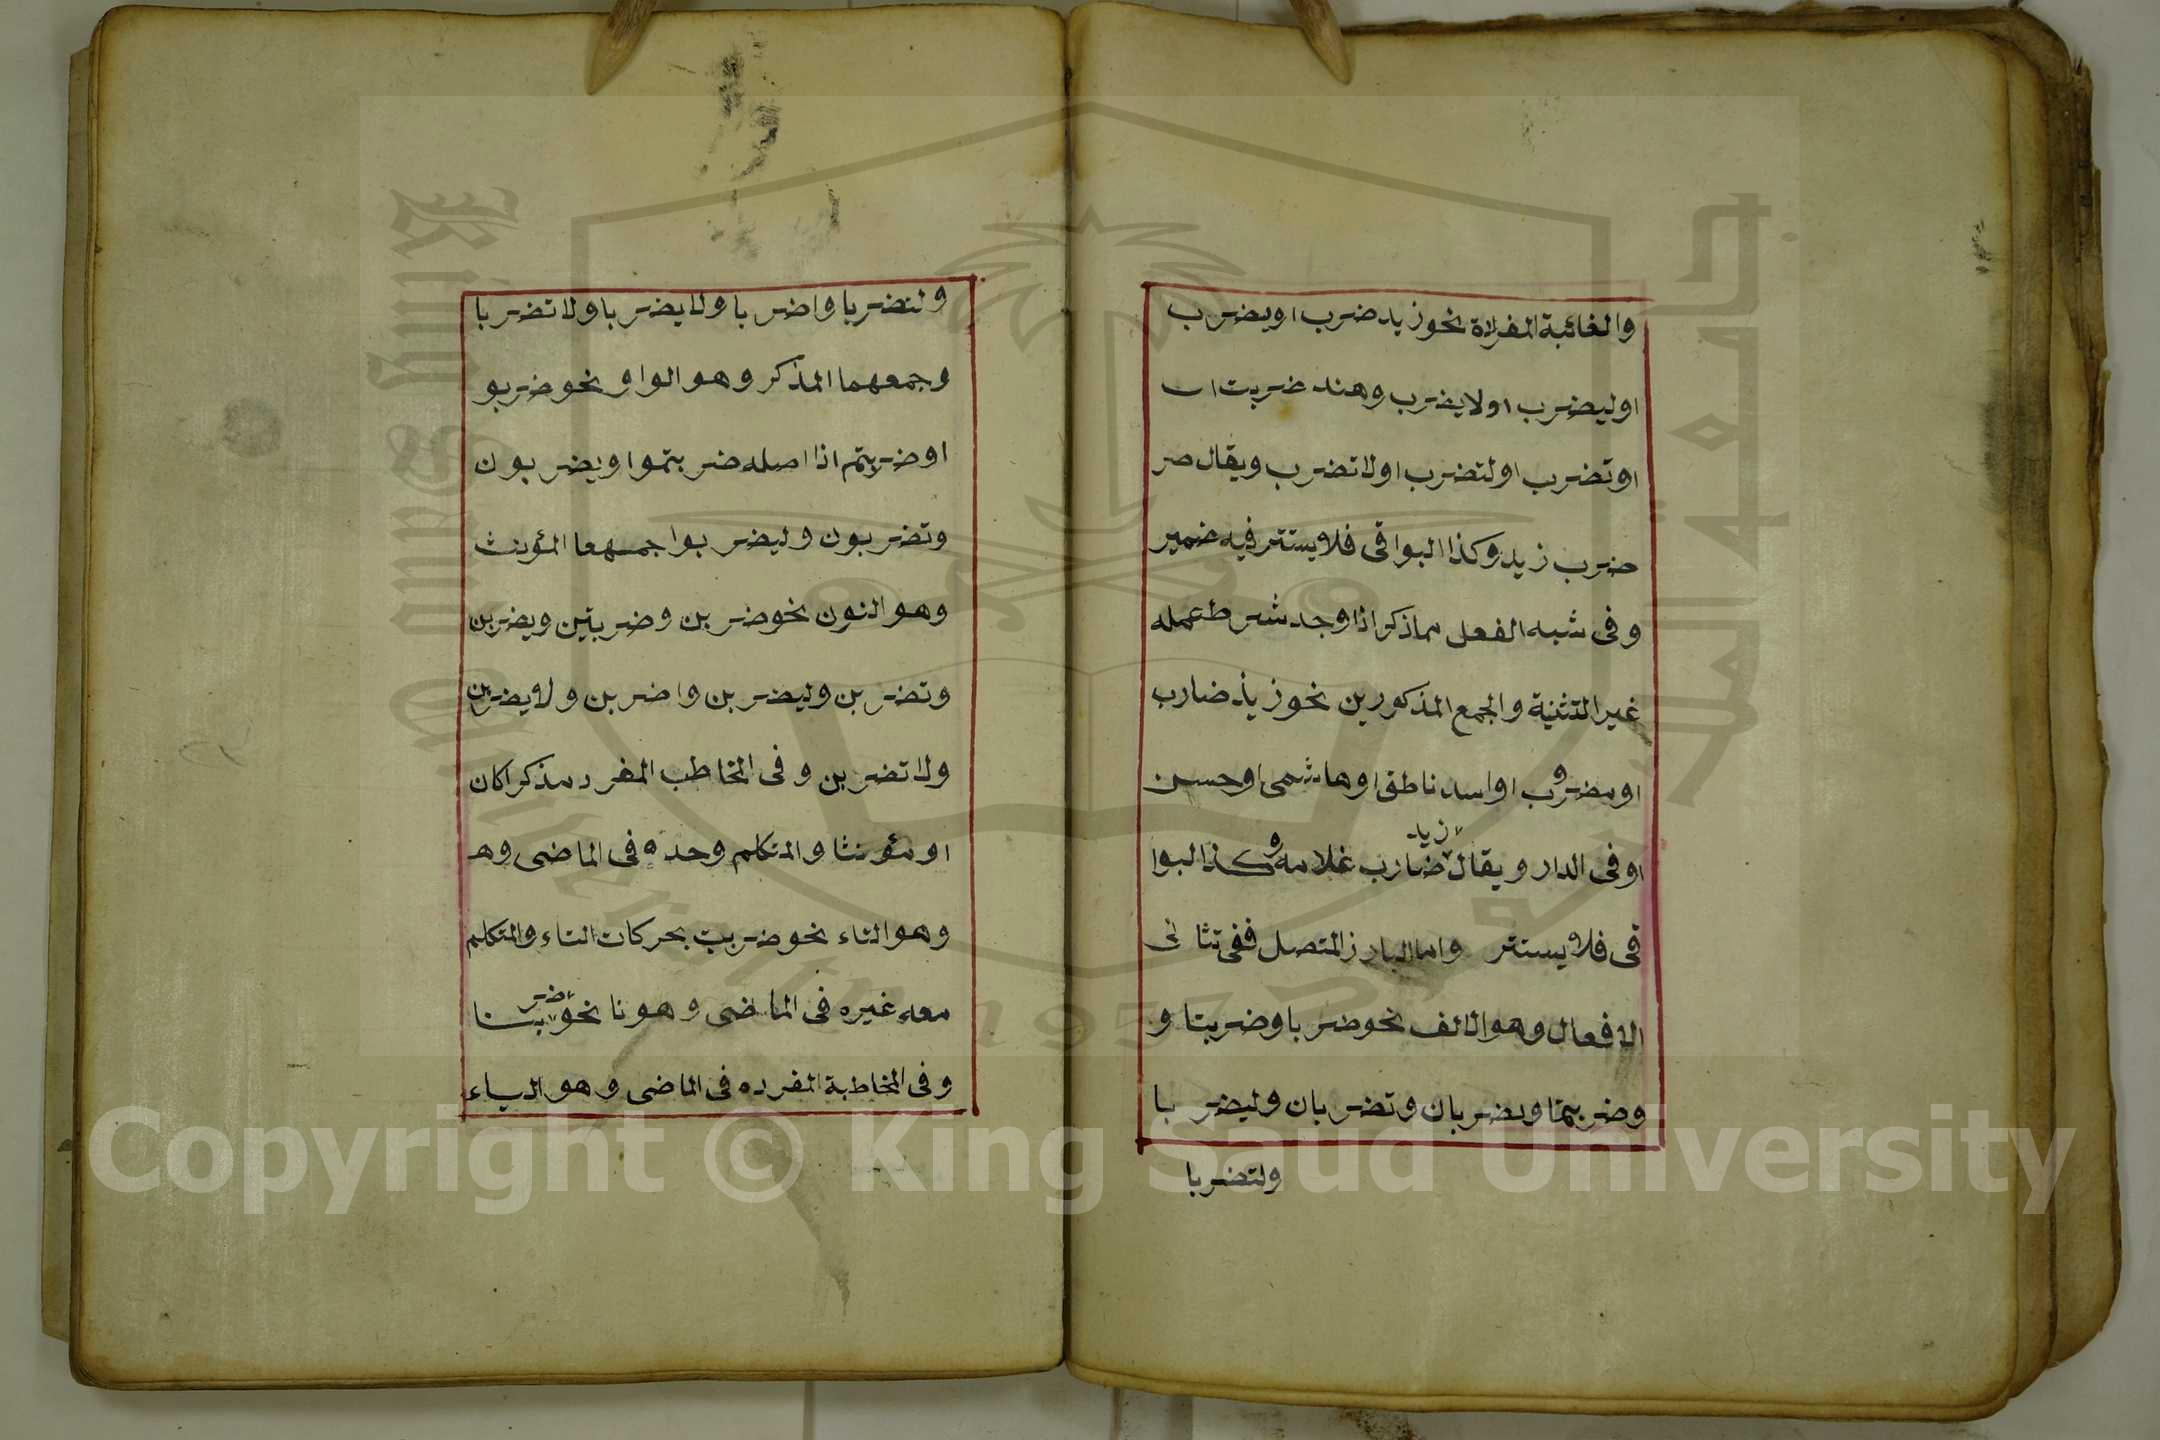 والغائبة المفراة نحو زيد ضرب اويضرب
اوليضرب اولايضرب وهند ضربت ا
اوتضرب اولتضرب اولاتضرب ويقال ضر
ضرب زيد وكذا البواقى فلا يستتر فيه ضمير
وفى شبه الفعل مماذكر اذا وجد شرط عمله
غير التثنية والجمع المذكورين نحو زيد ضارب
او مضروب او اسد ناطق او هاشمى او حسن
او فى الدار ويقال ضارب زيد غلامه وكذا البوا
قى فلا يستتر واما البارز المتصل ففى تثانى
الافعال وهو الالف نحو ضربا وضربتا و
وضربتما ويضربان وتضربان وليضربا
ولتضربا
ولتضربا واضربا ولايضربا ولاتضربا
وجمعهما المذكر وهو الواو نحو ضربو
اوضربتم اذا اصله ضربتموا ويضربون
وتضربون وليضربوا جمعهما المؤنث
وهو النون نحو ضربن وضربتين ويضربن
وتضربن وليضربن واضربن ولايضربن
ولاتضربن وفى المخاطب المفرد مذكرا كان
او مؤنثا والمتكلم وحده فى الماضى وهـ
وهو التاء نحو ضربت بحركات التاء والمتكلم
معه غيره فى الماضى وهو نا نحو ضربنا
وفى المخاطبة المفرده فى الماضى وهو الياء
Copyright © King Saud University
King Saud University
جامعة الملك سعود
1957